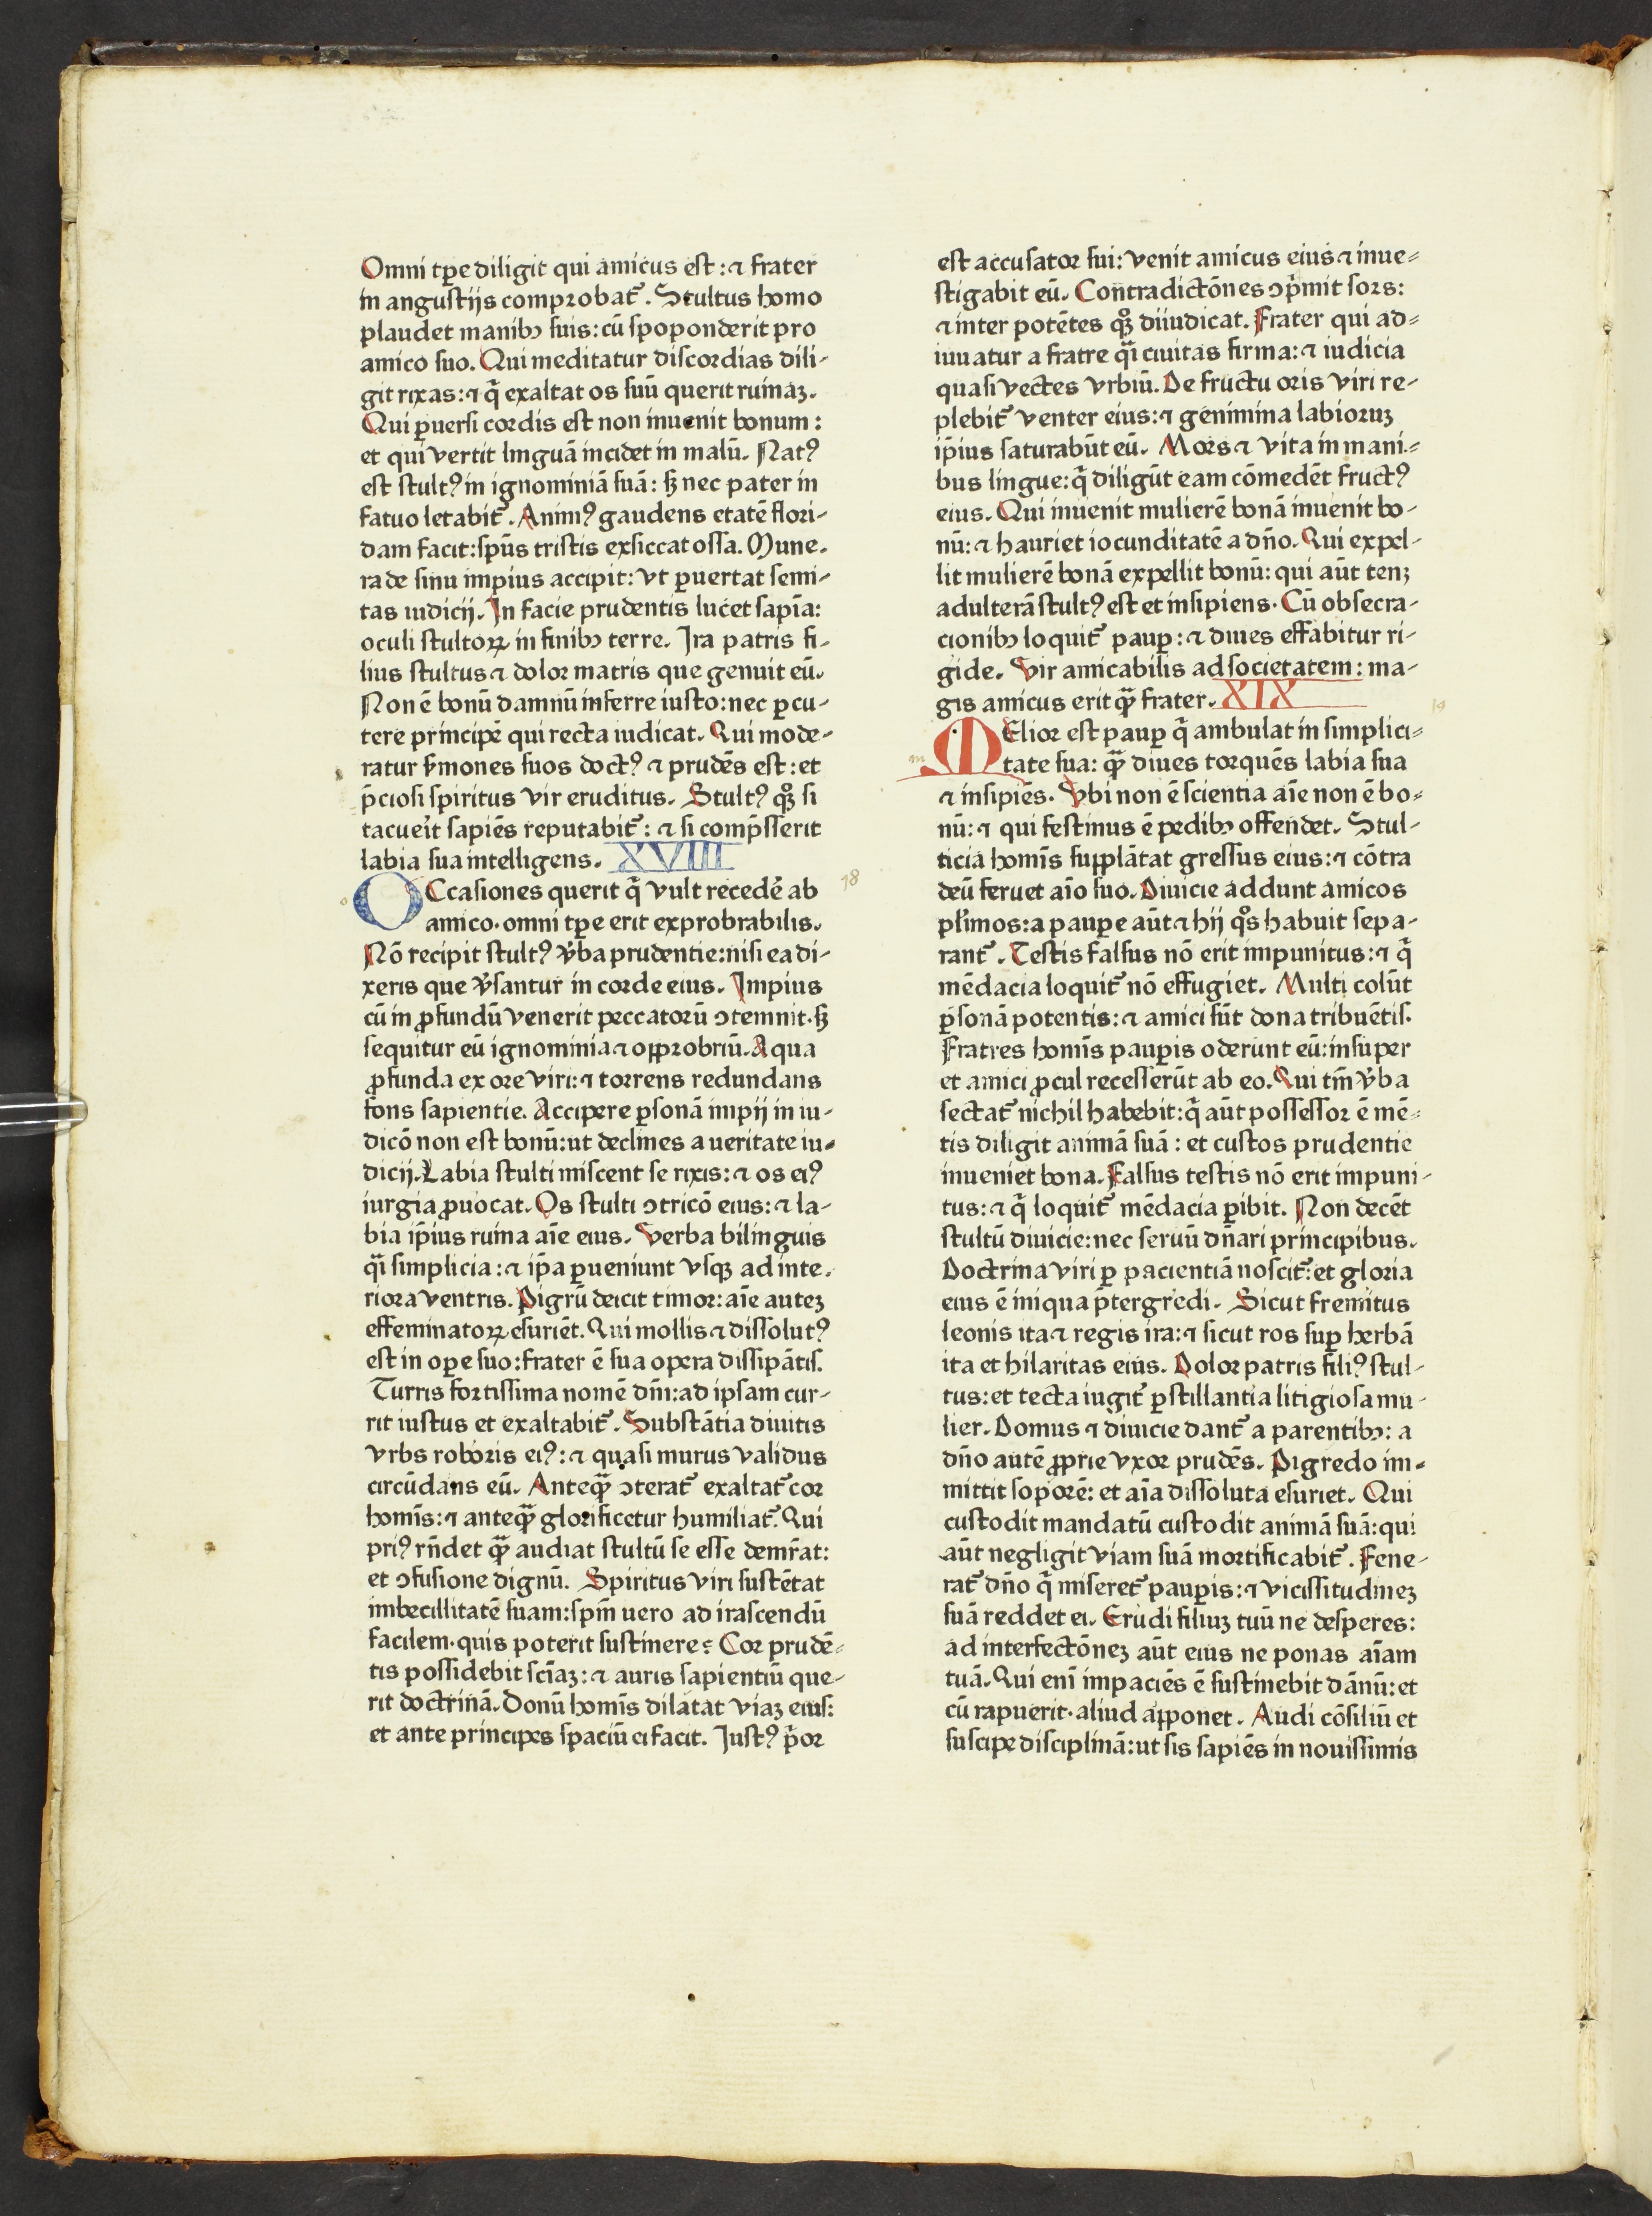 Omni tꝑe diligit qui amicus est: ⁊ frater
in angustijs comprobat᷑. Stultus homo
plaudet manibꝫ suis: cū spoponderit pro
amico suo. Qui meditatur discordias dili-
git rixas: ⁊ q̄ exaltat os suū querit ruinaꝫ.
Qui ꝑuersi cordis est non inuenit bonum:
et qui vertit linguā incidet in malū. Natꝰ
est stultꝰ in ignominiā suā: sꝫ nec pater in
fatuo letabit᷑. Animꝰ gaudens etatē flori-
dam facit: sp̄us tristis exsiccat ossa. Mune-
ra de sinu impius accipit: vt ꝑuertat semi-
tas iudicij. In facie prudentis lucet sapīa:
oculi stultoꝝ in finibꝫ terre. Ira patris fi-
lius stultus ⁊ dolor matris que genuit eū.
Non ē bonū damnū inferre iusto: nec ꝑcu-
tere principē qui recta iudicat. Qui mode-
ratur ẜmones suos doctꝰ ⁊ prudēs est: et
p̄ciosi spiritus vir eruditus. Stultꝰ qꝫ si
tacue᷑it sapiēs reputabit᷑: ⁊ si comp̄sserit
labia sua intelligens. XVIII
OCcasiones querit q̄ vult recedē ab
amico. omni tꝑe erit exprobrabilis.
Nō recipit stultꝰ v̄ba prudentie: nisi ea di-
xeris que v̄santur in corde eius. Impius
cū in ꝓfundū venerit peccatorū ↄtemnit. sꝫ
sequitur eū ignominia ⁊ opprobriū. Aqua
ꝓfunda ex ore viri: ⁊ torrens redundans
fons sapientie. Accipere ꝑsonā impij in iu-
dicō non est bonū: ut declines a ueritate iu-
dicij. Labia stulti miscent se rixis: ⁊ os eiꝰ
iurgia ꝓuocat. Os stulti ↄtricō eius: ⁊ la-
bia ip̄ius ruina aīe eius. Verba bilinguis
q̄i simplicia: ⁊ ip̄a ꝑueniunt vsqꝫ ad inte-
riora ventris. Pigrū deicit timor: aīe auteꝫ
effeminatoꝝ esuriēt. Qui mollis ⁊ dissolutꝰ
est in oꝑe suo: frater ē sua opera dissipātis.
Turris fortissima nomē dn̄i: ad ipsam cur-
rit iustus et exaltabit᷑. Substātia diuitis
vrbs roboris eiꝰ: ⁊ quasi murus validus
circūdans eū. Anteqꝫ̄ ↄterat᷑ exaltat᷑ cor
homīs: ⁊ anteqꝫ̄ glorificetur humiliat᷑. Qui
priꝰ rn̄det qꝫ̄ audiat stultū se esse demr̄at:
et ↄfusione dignū. Spiritus viri sustētat
imbecillitatē suam: sp̄m uero ad irascendū
facilem. quis poterit sustinere? Cor prudē-
tis possidebit scīaꝫ: ⁊ auris sapientiū que-
rit doctrinā. Donū homīs dilatat viaꝫ eius:
et ante principes spaciū ei facit. Iustꝰ p̄or
18
est accusator sui: venit amicus eius ⁊ inue-
stigabit eū. Contradictōnes ↄp̄mit sors:
⁊ inter potētes qꝫ diiudicat. Frater qui ad-
iuuatur a fratre q̄i ciuitas firma: ⁊ iudicia
quasi vectes vrbiū. De fructu oris viri re-
plebit᷑ venter eius: ⁊ genimina labioruꝫ
ip̄ius saturabūt eū. Mors ⁊ vita in mani-
bus lingue: q̄ diligūt eam cōmedēt fructꝰ
eius. Qui inuenit mulierē bonā inuenit bo-
nū: ⁊ hauriet iocunditatē a dn̄o. Qui expel-
lit mulierē bonā expellit bonū: qui aūt tenꝫ
adulterā stultꝰ est et insipiens. Cū obsecra-
cionibꝫ loquit᷑ pauꝑ: ⁊ diues effabitur ri-
gide. Vir amicabilis ad societatem: ma-
gis amicus erit qꝫ̄ frater. XIX
19
m
MElior est pauꝑ q̄ ambulat in simplici-
tate sua: qꝫ̄ diues torquēs labia sua
⁊ insipiēs. Vbi non ē scientia aīe non ē bo-
nū: ⁊ qui festinus ē pedibꝫ offendet. Stul-
ticia homīs supplātat gressus eius: ⁊ cōtra
deū feruet aīo suo. Diuicie addunt amicos
pl̄imos: a pauꝑe aūt ⁊ hij qͦs habuit sepa-
rant᷑. Testis falsus nō erit impunitus: ⁊ q̄
mēdacia loquit᷑ nō effugiet. Multi colūt
ꝑsonā potentis: ⁊ amici sūt dona tribuētis.
Fratres homīs pauꝑis oderunt eū: insuper
et amici ꝓcul recesserūt ab eo. Qui tm̄ v̄ba
sectat᷑ nichil habebit: q̄ aūt possessor ē mē-
tis diligit animā suā: et custos prudentie
inueniet bona. Falsus testis nō erit impuni-
tus: ⁊ q̄ loquit᷑ mēdacia ꝑibit. Non decēt
stultū diuicie: nec seruū dn̄ari principibus.
Doctrina viri ꝑ pacientiā noscit᷑: et gloria
eius ē iniqua p̄tergredi. Sicut fremitus
leonis ita ⁊ regis ira: ⁊ sicut ros suꝑ herbā
ita et hilaritas eius. Dolor patris filiꝰ stul-
tus: et tecta iugit᷑ ꝑstillantia litigiosa mu-
lier. Domus ⁊ diuicie dant᷑ a parentibꝫ: a
dn̄o autē ꝓprie vxor prudēs. Pigredo im-
mittit soporē: et aīa dissoluta esuriet. Qui
custodit mandatū custodit animā suā: qui
aūt negligit viam suā mortificabit᷑. Fene-
rat᷑ dn̄o q̄ miseret᷑ pauꝑis: ⁊ vicissitudineꝫ
suā reddet ei. Erudi filiuꝫ tuū ne desperes:
ad interfectōneꝫ aūt eius ne ponas aīam
tuā. Qui enī impaciēs ē sustinebit dānū: et
cū rapuerit. aliud apponet. Audi cōsiliū et
suscipe disciplinā: ut sis sapiēs in nouissimis